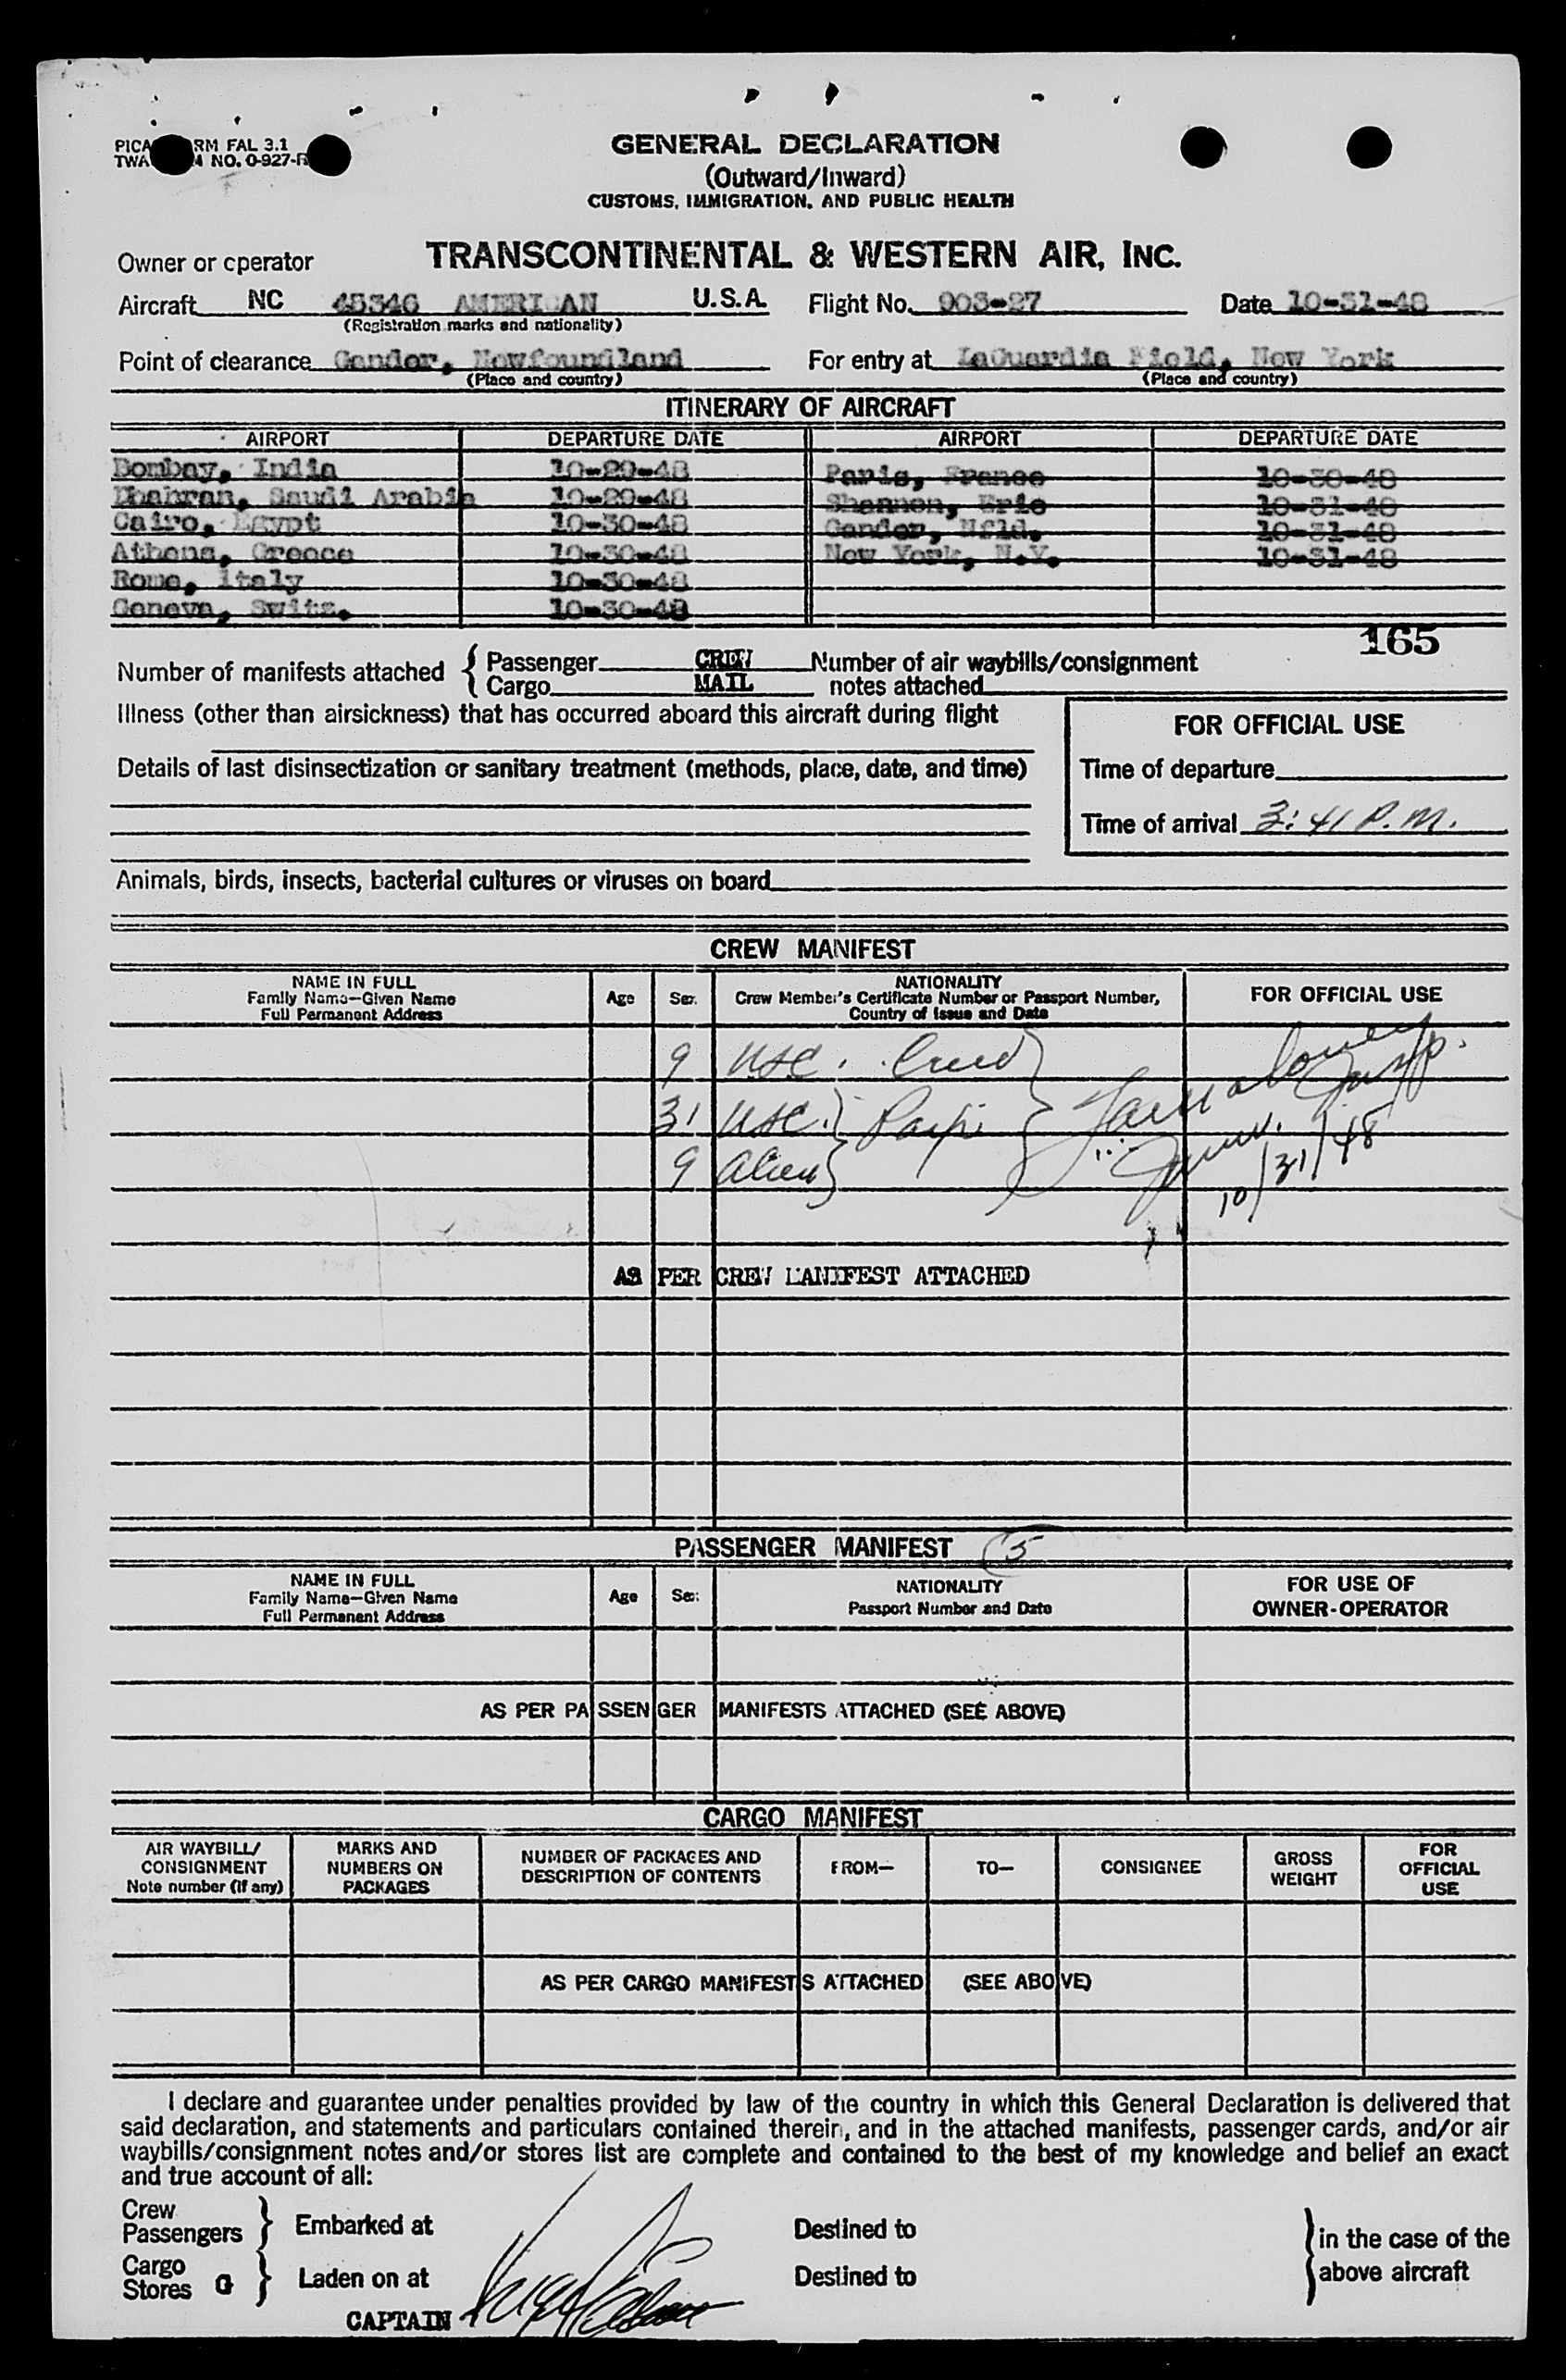 PICA RM FAL 3.1
TWA NO. O-927-R
GENERAL DECLARATION
(Outward/Inward)
CUSTOMS, IMMIGRATION, AND PUBLIC HEALTH
Owner or operator TRANSCONTINENTAL & WESTERN AIR, INC.
Aircraft NC 45346 AMERICAN U.S.A. Flight No. 903-27 Date 10-31-48
(Registration marks and nationality)
Point of clearance Gander, Newfoundland For entry at LaGuardia Field, New York
(Place and country) (Place and country)
ITINERARY OF AIRCRAFT
AIRPORT DEPARTURE DATE AIRPORT DEPARTURE DATE
Bombay, India 10-29-48 Paris, France 10-30-48
Dhahran, Saudi Arabia 10-29-48 Shannon, Erie 10-31-48
Cairo, Egypt 10-30-48 Gander, Nfld. 10-31-48
Athens, Greece 10-30-48 New York, N.Y. 10-31-48
Rome, Italy 10-30-48
Geneva, Switz. 10-30-48
165
Number of manifests attached { Passenger CREW Number of air waybills/consignment
Cargo MAIL notes attached
Illness (other than airsickness) that has occurred aboard this aircraft during flight
FOR OFFICIAL USE
Details of last disinsectization or sanitary treatment (methods, place, date, and time)
Time of departure
Time of arrival 3:41 P.M.
Animals, birds, insects, bacterial cultures or viruses on board
CREW MANIFEST
NAME IN FULL
Family Name—Given Name
Full Permanent Address
Age
Sex
NATIONALITY
Crew Member's Certificate Number or Passport Number,
Country of Issue and Date
FOR OFFICIAL USE
9 USC. Crew
31 USC.
9 Alien
10/31/48
AS PER CREW MANIFEST ATTACHED
PASSENGER MANIFEST 5
NAME IN FULL
Family Name—Given Name
Full Permanent Address
Age
Sex
NATIONALITY
Passport Number and Date
FOR USE OF
OWNER-OPERATOR
AS PER PASSENGER MANIFESTS ATTACHED (SEE ABOVE)
CARGO MANIFEST
AIR WAYBILL/
CONSIGNMENT
Note number (if any)
MARKS AND
NUMBERS ON
PACKAGES
NUMBER OF PACKAGES AND
DESCRIPTION OF CONTENTS
FROM—
TO—
CONSIGNEE
GROSS
WEIGHT
FOR
OFFICIAL
USE
AS PER CARGO MANIFESTS ATTACHED (SEE ABOVE)
I declare and guarantee under penalties provided by law of the country in which this General Declaration is delivered that
said declaration, and statements and particulars contained therein, and in the attached manifests, passenger cards, and/or air
waybills/consignment notes and/or stores list are complete and contained to the best of my knowledge and belief an exact
and true account of all:
Crew
Passengers } Embarked at Destined to } in the case of the
Cargo
Stores } Laden on at Destined to above aircraft
CAPTAIN